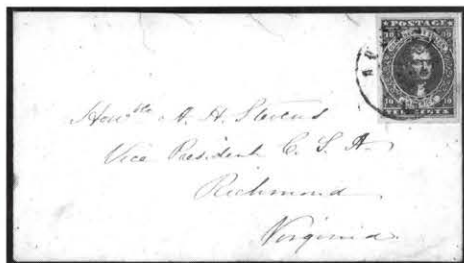 POSTAGE
10 10
TEN CENTS
Honble A. H. Stevens
Vice President C. S. A.
Richmond
Virginia